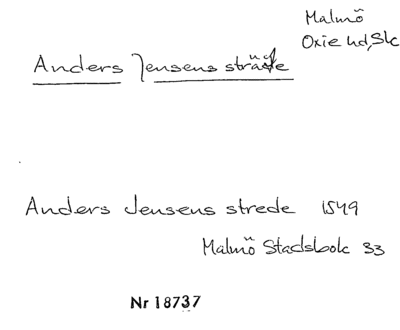 Malmö
Oxie hd, Skc
Anders Jensens sträde
Anders Jensens strede 1549
Malmö Stadsbok 33
Nr 18737